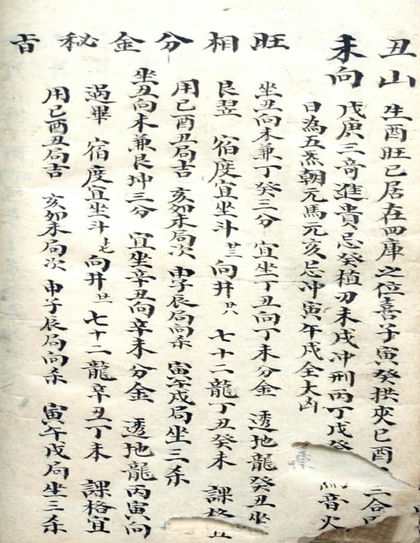 丑山 生酉旺巳居在四庫之位喜子寅癸拱夾巳酉 三合
未向 戊庚三奇進貴忌癸植刃未戌冲刑丙丁戊癸 音火
日為五炁朝元馬元亥忌冲寅午戌全大凶
旺相分金秘旨
坐丑向未兼丁癸三分 宜坐丁丑向丁未分金 透地龍癸丑坐
艮翌 宿度宜坐斗廿三向井廿八 七十二龍丁丑癸未 課格
用巳酉丑局吉 亥卯未局次 申子辰局向杀 寅午戌局坐三杀
坐丑向未兼艮坤三分 宜坐辛丑向辛未分金 透地龍丙寅向
過畢 宿度宜坐斗 向井 七十二龍辛丑丁未 課格宜
用巳酉丑局吉 亥卯未局次 申子辰局向杀 寅午戌局坐三杀